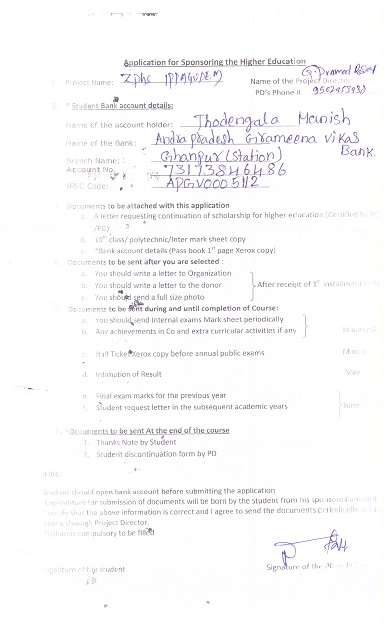 Application for Sponsoring the Higher Education
Project Name: ZPHS IPPAGUDEM
Name of the Project Director
G. Pramod Reddy
PD's Phone #
* Student Bank account details:
Name of the account holder: Thodengala Manish
Name of the Bank: Andra pradesh Grameena vikas Bank
Branch Name: Ghanpur (station)
Account No. 73173846486
IFSC Code: APGV0005112
Documents to be attached with this application
a. A letter requesting continuation of scholarship for higher education (Certified by
/PG)
b. 10th class/ polytechnic/Inter mark sheet copy
c. *Bank account details (Pass book 1st page Xerox copy)
Documents to be sent after you are selected :
a. You should write a letter to Organization
b. You should write a letter to the donor
After receipt of 1st installment
c. You should send a full size photo
Documents to be sent during and until completion of Course:
a. You should send Internal exams Mark sheet periodically
b. Any achievements in Co and extra curricular activities if any
c. Hall Ticket Xerox copy before annual public exams March
d. Intimation of Result May
e. Final exam marks for the previous year
June
f. Student request letter in the subsequent academic years
* Documents to be sent At the end of the course
1. Thanks Note by Student
2. Student discontinuation form by PD
Student should open bank account before submitting the application
Expenditure for submission of documents will be born by the student from his sponsored
certify that the above information is correct and I agree to send the documents periodically
through Project Director.
compulsory to be filled
Signature of the student
Signature of the PD